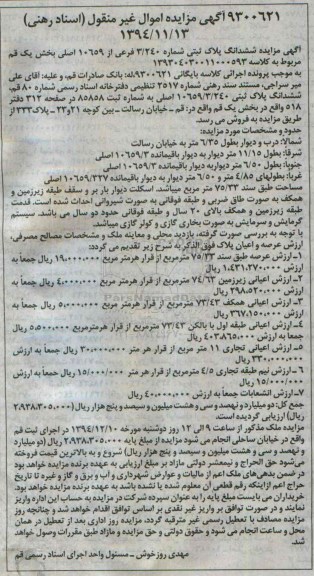 ۹۳۰۰۶۲۱ آگهی مزایده اموال غیر منقول (اسناد رهنی)
۱۳۹۴/۱۱/۱۳
آگهی مزایده ششدانگ پلاک ثبتی شماره ۳/۲۴۰ فرعی از ۱۰۶۵۹ اصلی بخش یک قم
مربوط به کلاسه ۱۳۹۳۰۴۰۳۰۰۱۱۰۰۰۵۹۳
به موجب پرونده اجرائی کلاسه بایگانی ۹۳۰۰۶۲۱له: بانک صادرات قم، و علیه: آقای علی
میر سراجی، مستند سند رهنی شماره ۳۵۱۷ تنظیمی دفترخانه اسناد رسمی شماره ۸۰ قم،
ششدانگ پلاک ثبتی ۱۰۶۵۹/۳/۲۴۰ اصلی به شماره ثبت ۸۵۸۵۸ در صفحه ۳۱۲ دفتر
۵۱۸ واقع در بخش یک قم واقع در: قم - خیابان رسالت - بین کوچه ۲۱و۲۳ - پلاک۳۳۳ از
طریق مزایده به فروش می رسد.
حدود و مشخصات مورد مزایده:
شمالا: درب و دیوار بطول ۶/۳۵ متر به خیابان رسالت
شرقا: بطول ۱۱/۱۵ متر دیوار به دیوار باقیمانده ۱۰۶۵۹/۳ اصلی
جنوبا: بطول ۶/۵۰ متر دیوار به دیوار باقیمانده ۱۰۶۵۹/۳ اصلی
غربا: بطولهای ۴/۸۵ متر و ۶/۵۰ متر دیوار به دیوار باقیمانده ۱۰۶۵۹/۳۲۷ اصلی
مساحت طبق سند ۷۵/۳۳ متر مربع میباشد. اسکلت دیوار بار بر و سقف طبقه زیرزمین و
همکف به صورت طاق ضربی و طبقه فوقانی به صورت شیروانی احداث شده است. قدمت
طبقه زیرزمین و همکف بالای ۲۰ سال و طبقه فوقانی حدود دو سال می باشد. سیستم
گرمایش و سرمایش به صورت بخاری گازی و کولر گازی میباشد.
با توجه به بررسی صورت گرفته، بازدید محلی و معاینه ملک و مشخصات مصالح مصرفی
ارزش عرصه و اعیان پلاک فوق الذکر به شرح زیر تقدیم می گردد:
۱ـ ارزش عرصه طبق سند ۷۵/۳۳ مترمربع از قرار هر مترمربع ۱۹،۰۰۰،۰۰۰ ریال جمعاً به
ارزش ۱،۴۳۱،۲۷۰،۰۰۰ ریال
۲ـ ارزش اعیانی زیرزمین ۷۴/۶۳ مترمربع از قرار هر مترمربع ۴،۰۰۰،۰۰۰ ریال جمعاً به
ارزش ۲۹۸،۵۲۰،۰۰۰ ریال
۳ـ ارزش اعیانی همکف ۷۳/۴۳ مترمربع از قرار هرمتر مربع ۵،۰۰۰،۰۰۰ ریال جمعاً به
ارزش ۳۶۷،۱۵۰،۰۰۰ ریال
۴ـ ارزش اعیانی طبقه اول با بالکن ۷۳/۴۳ مترمربع از قرار هرمترمربع ۵،۵۰۰،۰۰۰ ریال
جمعاً به ارزش ۴۰۳۸۶۵،۰۰۰ ریال
۵ـ ارزش اعیانی تجاری ۱۱ متر مربع از قرار هر متر ۳۰،۰۰۰،۰۰۰ ریال جمعاً به ارزش
۳۳۰،۰۰۰،۰۰۰ ریال
۶ـ ارزش نیم طبقه تجاری ۴/۵ مترمربع از قرار هرمتر ۱۵،۰۰۰/۰۰۰ ریال جمعاً به ارزش
۱۵/۰۰۰/۰۰۰ ریال
۷ـ ارزش انشعابات جمعاً به ارزش ۴۰،۰۰۰،۰۰۰ ریال
جمع کل: دو میلیارد و نهصد و سی و هشت میلیون و سیصد و پنج هزار ریال(۲،۹۳۸،۳۰۵،۰۰۰
ریال) ارزیابی گردیده است.
مزایده ملک مذکور از ساعت ۹ الی ۱۲ روز دوشنبه مورخه ۱۳۹۴/۱۲/۱۰ در اجرای ثبت قم
واقع در خیابان ساحلی انجام می شود مزایده از مبلغ پایه ۲،۹۳۸،۳۰۵،۰۰۰ ریال (دو میلیارد
و نهصد و سی و هشت میلیون و سیصد و پنج هزار ریال) شروع و به بالاترین قیمت فروخته
می‌شود حق الحراج و نیمعشر دولتی مازاد بر مبلغ ارزیابی به عهده برنده مزایده خواهد بود
در ضمن بدهی‌های ملک اعم از مالیات و عوارض شهرداری و آب و برق و گاز و غیره تا تاریخ
حراج اعم ازاینکه رقم قطعی آن معلوم شده یا نشده باشد به عهده برنده مزایده خواهد بود.
خریداران می بایست مبلغ پایه را به عنوان سپرده شرکت در مزایده به حساب این اداره واریز
نمایند و در صورت توافق بر واریز غیر نقدی بر اساس توافق اقدام خواهد شد و چنانچه روز
مزایده مصادف با تعطیل رسمی غیر مترقبه گردد، مزایده روز اداری بعد از تعطیل در همان
محل و ساعت انجام می شود و حقوق دولتی و حق مزایده و مازاد طبق مقررات وصول خواهد
شد.
مهدی روزخوش ـ مسئول واحد اجرای اسناد رسمی قم